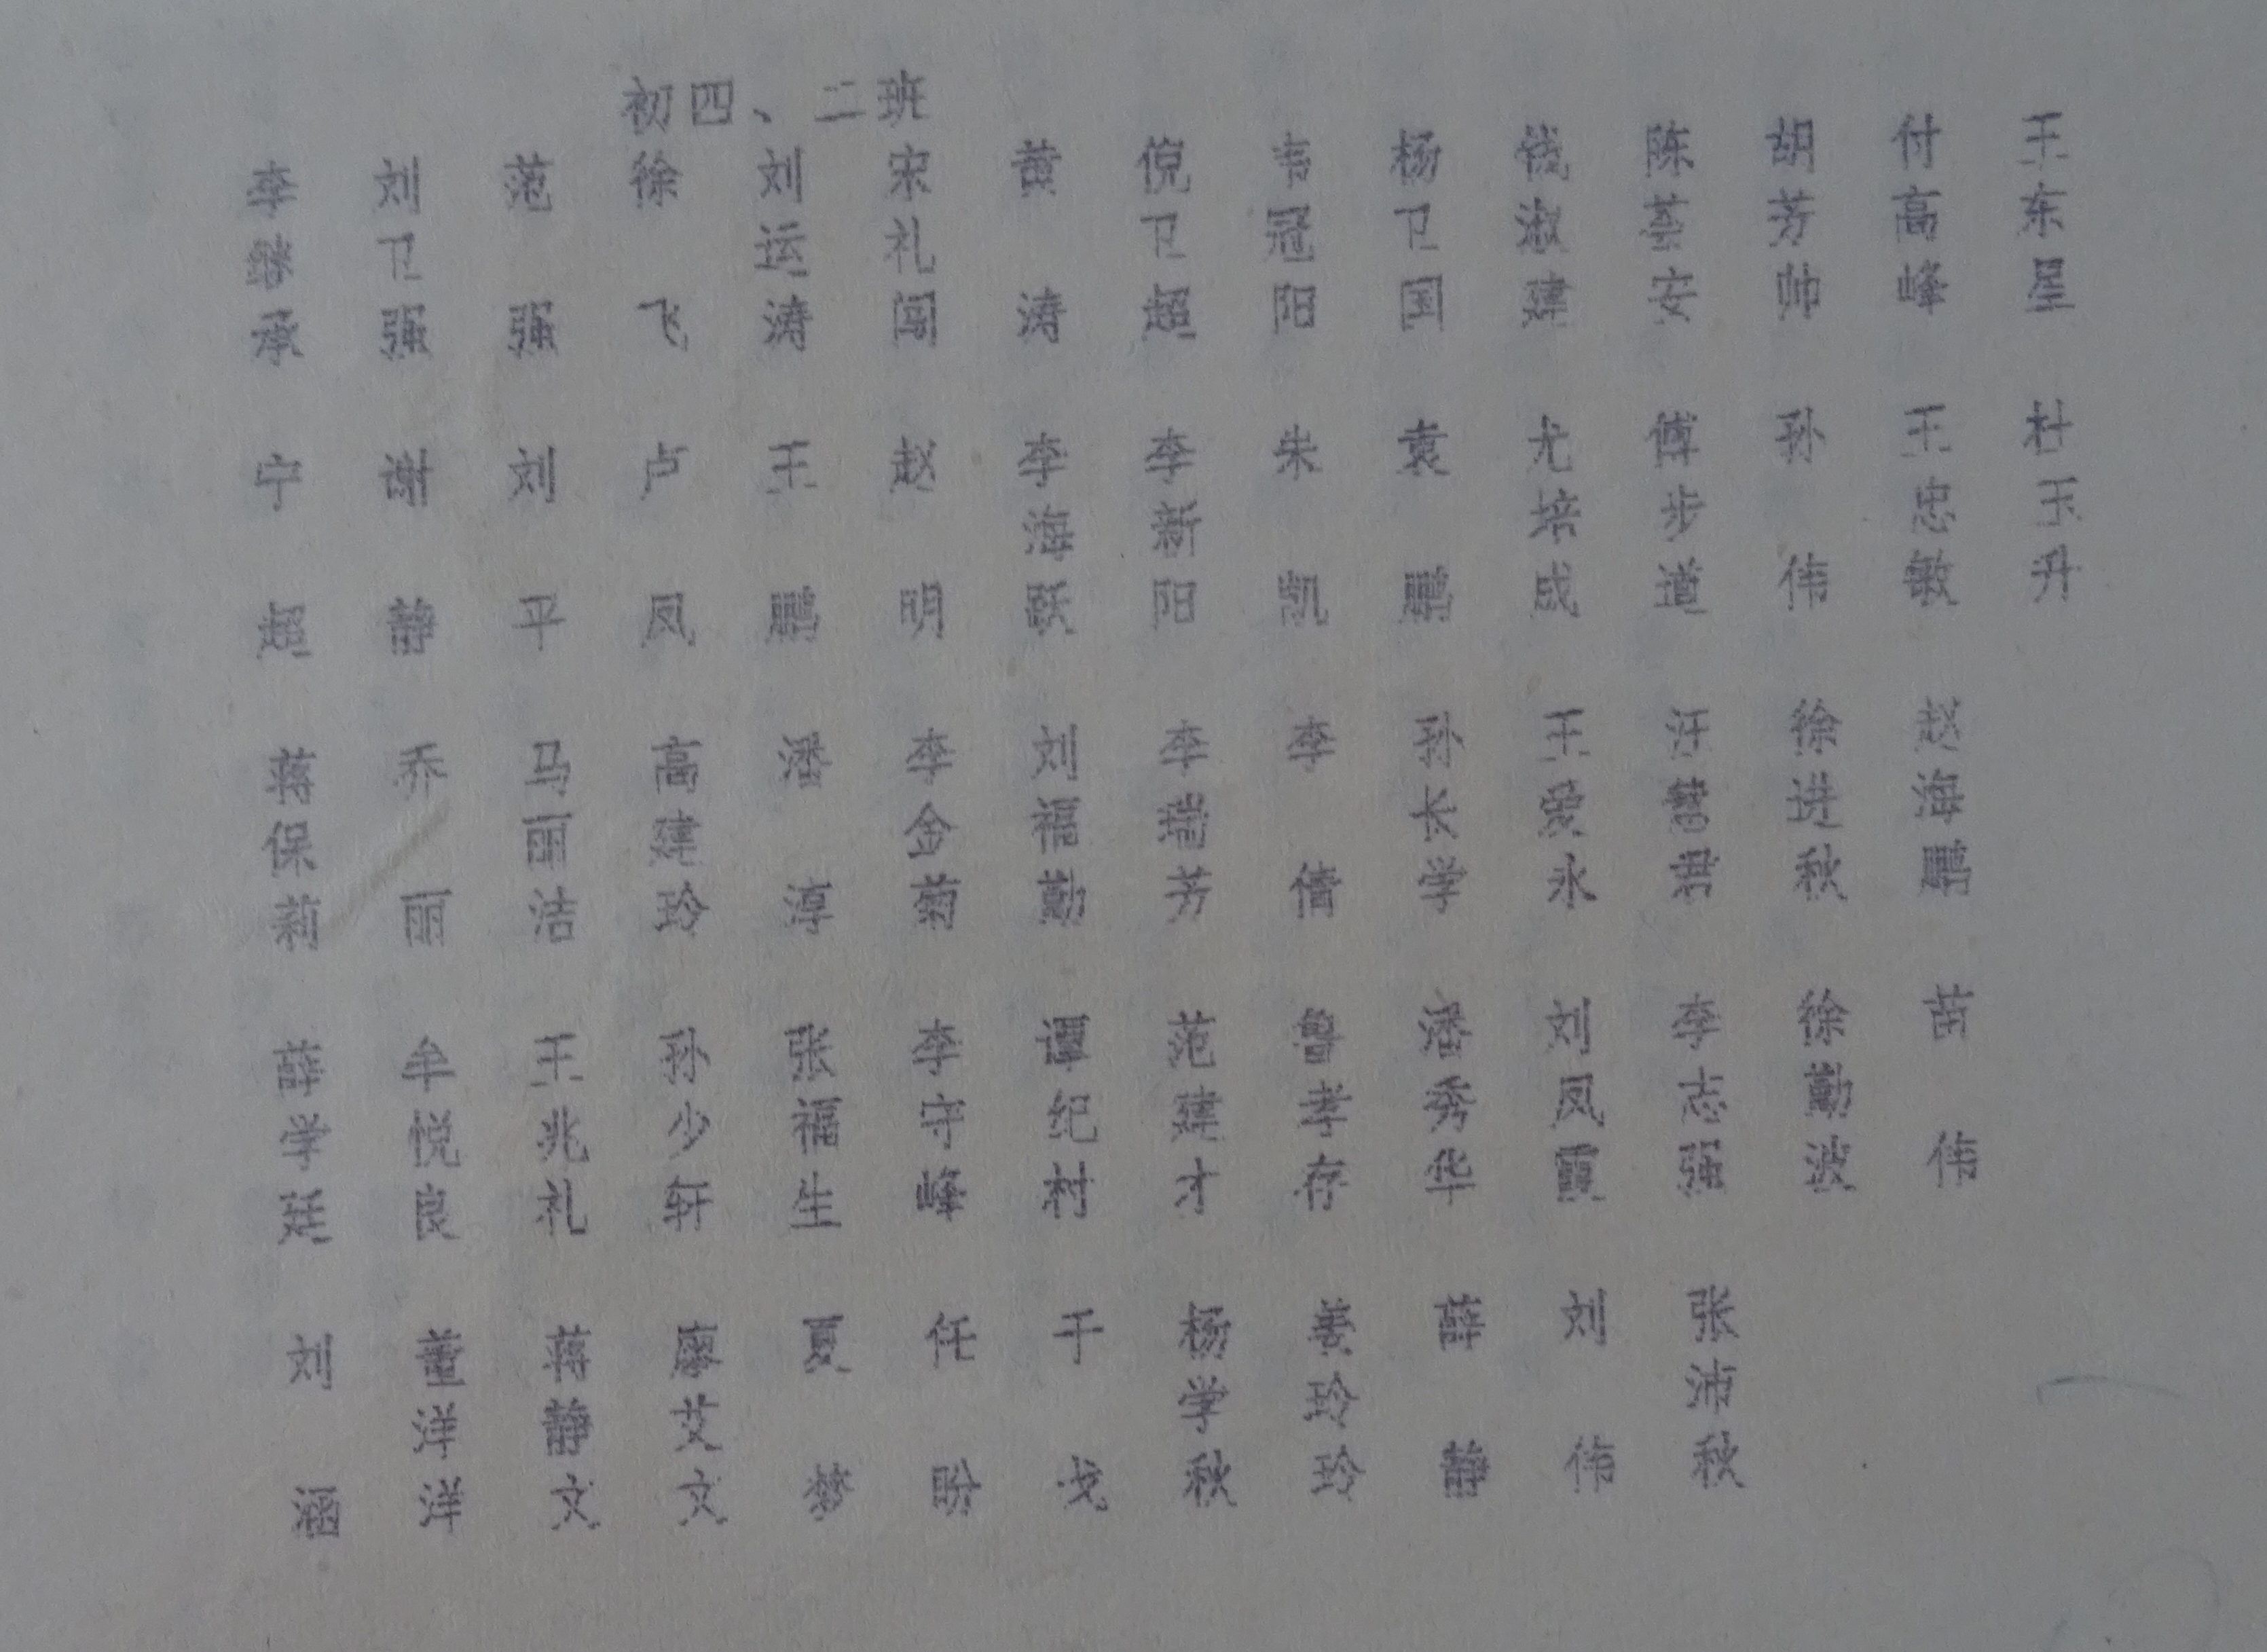 初四、二班
李继承 刘卫强 范强 徐飞 刘运涛 宋礼闯 黄涛 倪卫超 韦冠阳 杨卫国 钱淑建 陈蔡安 胡芳帅 付高峰 王东星
宁超 谢静 刘平 卢凤 王鹏 赵明 李海跃 李新阳 朱凯 袁鹏 尤培成 傅步道 孙伟 王忠敏 杜玉丹
蒋保莉 乔丽 马丽洁 高建玲 潘淳 李金菊 刘福勤 李瑞芳 李倩 孙长学 王爱永 汪静 徐洪秋 赵海鹏
薛学廷 牟悦良 王兆礼 孙少轩 张福生 李守峰 谭纪村 范建才 鲁孝存 潘秀华 刘凤霞 李志强 徐勤波 苗伟
刘涵 董洋洋 蒋静文 廖艾文 夏梦 任盼 于戈 杨学秋 姜玲玲 薛静 刘伟 张沛秋